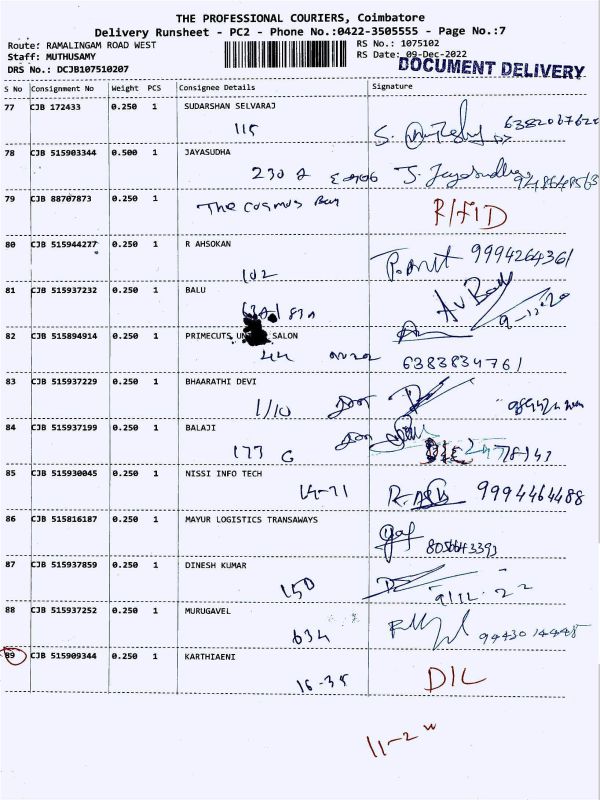 THE PROFESSIONAL COURIERS, Coimbatore
Delivery Runsheet - PC2 - Phone No.:0422-3505555 - Page No.:7
Route: RAMALINGAM ROAD WEST
RS No.: 1075102
Staff: MUTHUSAMY
RS Date: 09-Dec-2022
DRS No.: DCJB107510207
DOCUMENT DELIVERY
S No Consignment No Weight PCS Consignee Details Signature
77 CJB 172433 0.250 1 SUDARSHAN SELVARAJ
115
78 CJB 515903344 0.500 1 JAYASUDHA
230 J. Jayasudha
79 CJB 88707873 0.250 1
The Cosmos Ban R/FID
80 CJB 515944277 0.250 1 R AHSOKAN
102 9994264361
81 CJB 515937232 0.250 1 BALU
82 CJB 515894914 0.250 1 PRIMECUTS SALON
44 6383834761
83 CJB 515937229 0.250 1 BHAARATHI DEVI
1/10
84 CJB 515937199 0.250 1 BALAJI
177 G
85 CJB 515930045 0.250 1 NISSI INFO TECH
14-71 9994464488
86 CJB 515816187 0.250 1 MAYUR LOGISTICS TRANSAWAYS
8056643393
87 CJB 515937859 0.250 1 DINESH KUMAR
150 9/12.22
88 CJB 515937252 0.250 1 MURUGAVEL
634
89 CJB 515909344 0.250 1 KARTHIAENI
16-35 D/L
11-2 w